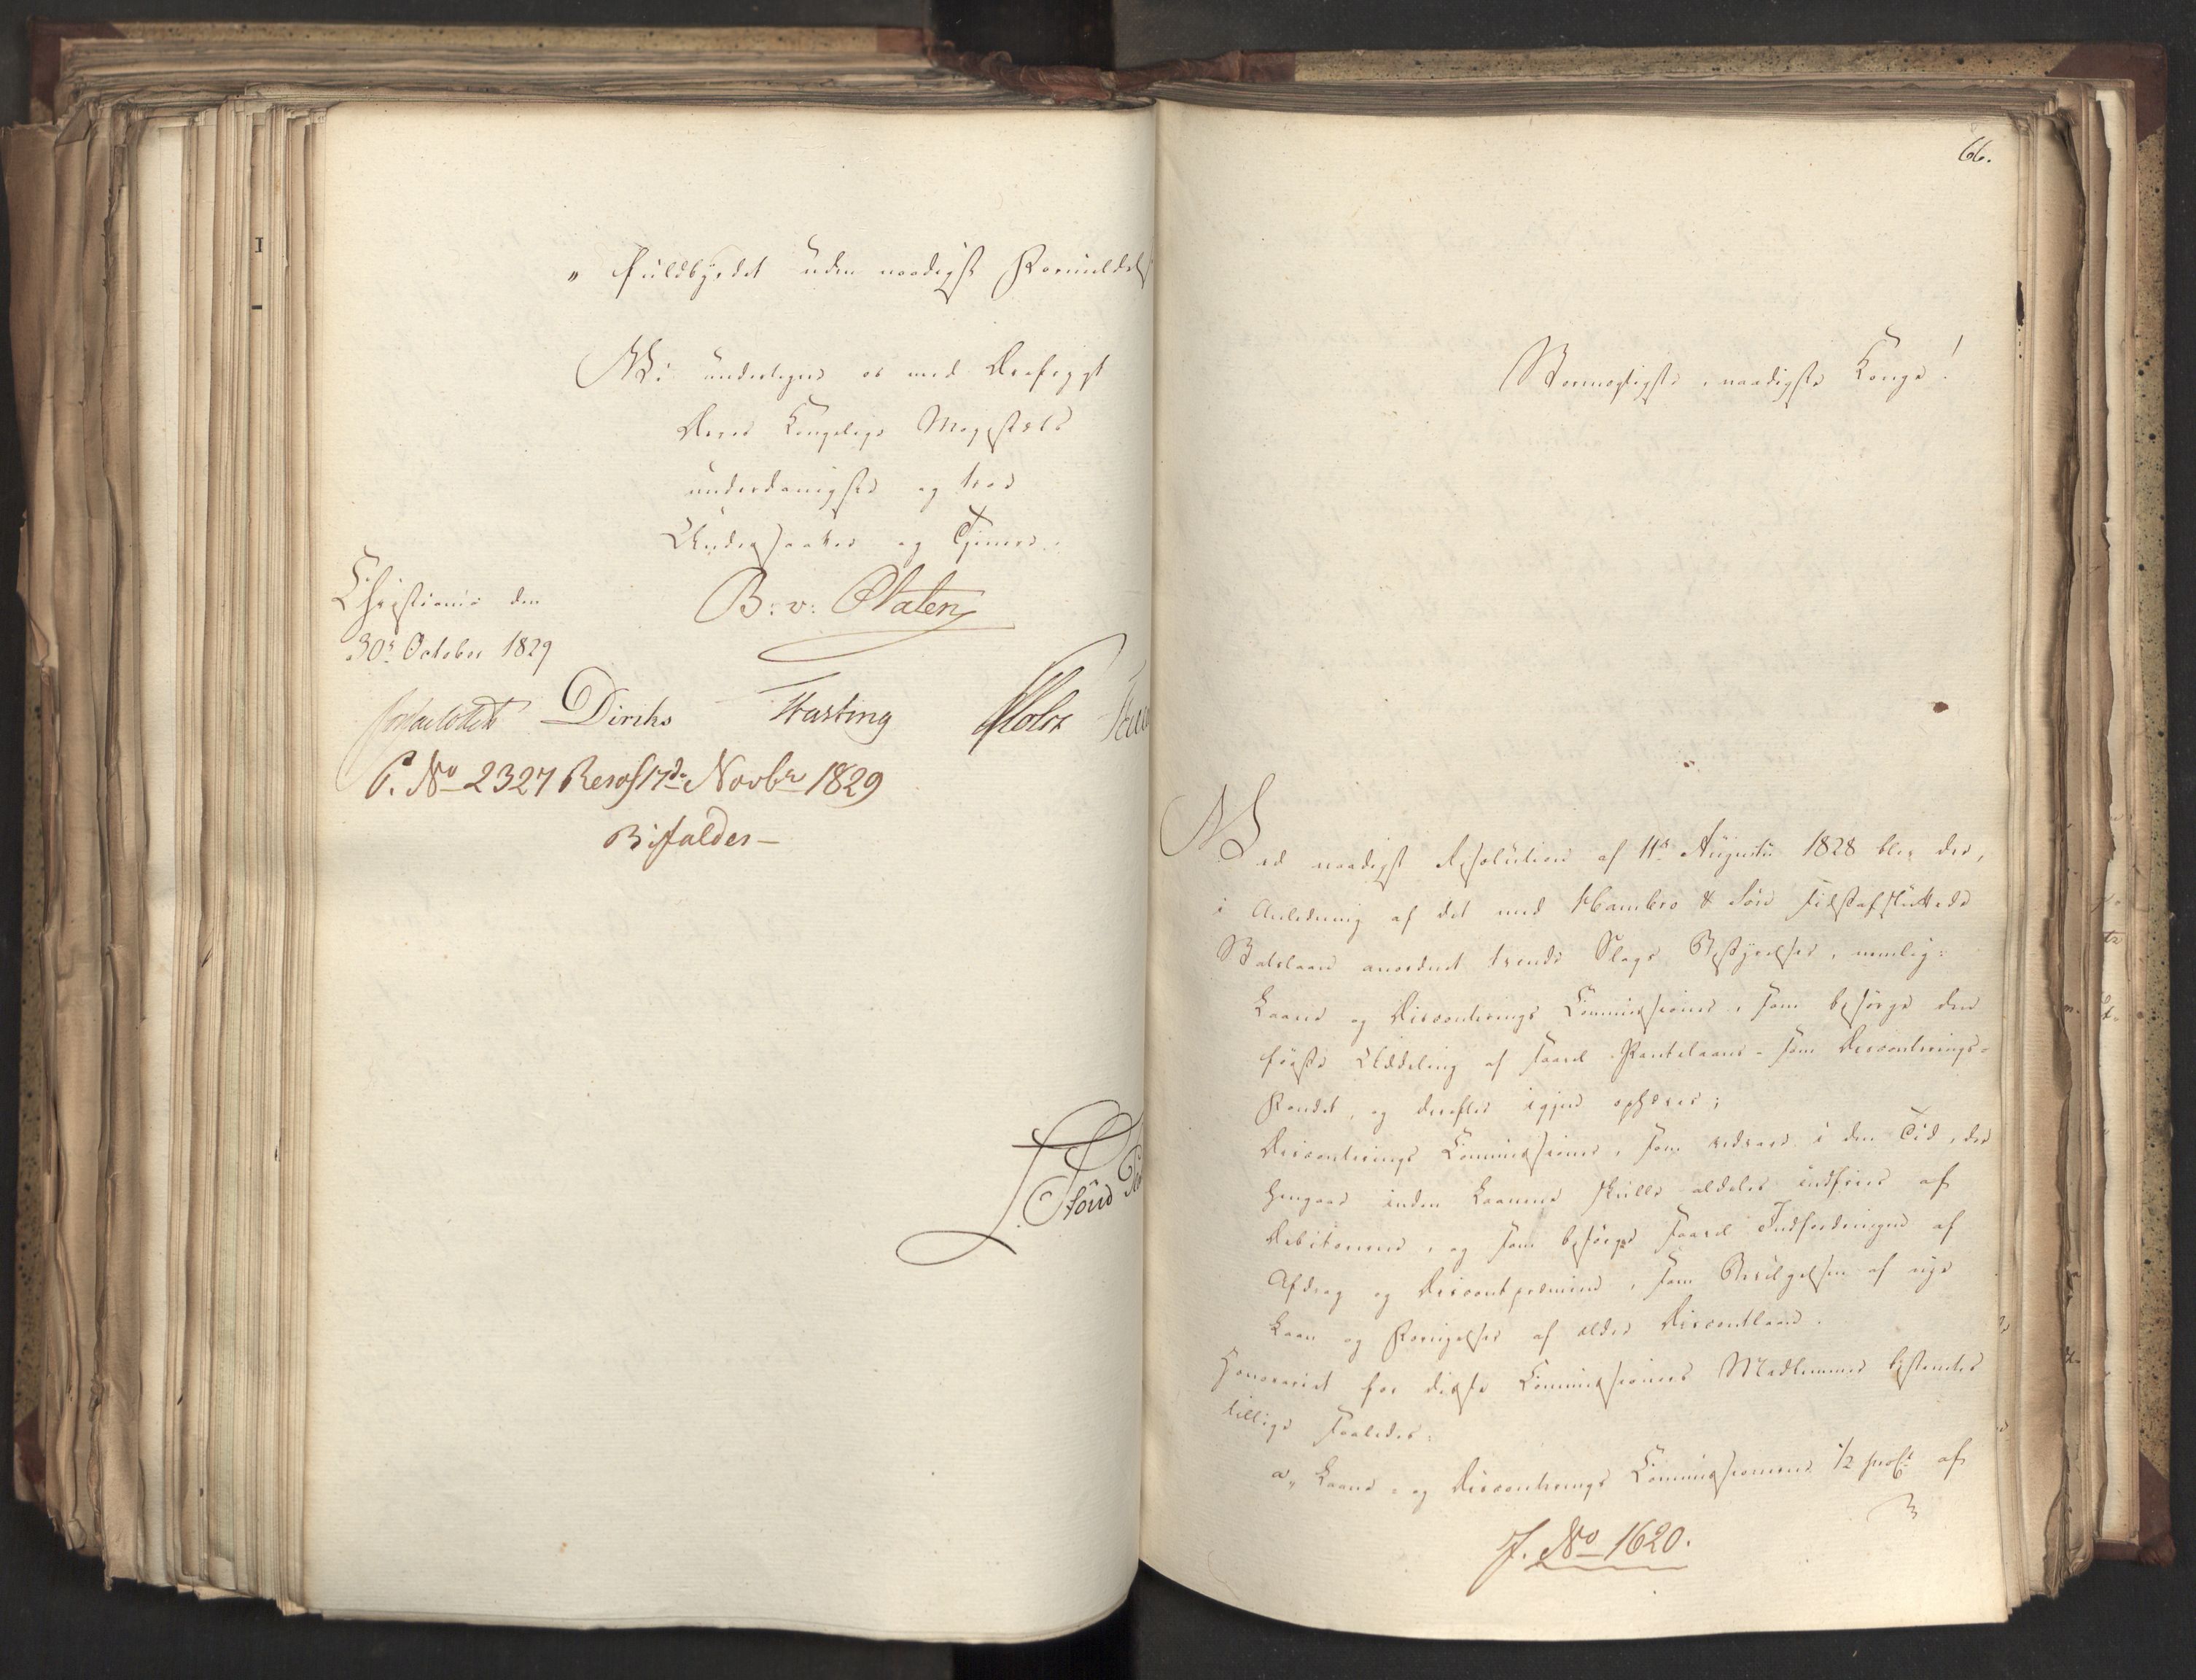 „ fuldbyrdet uden naadigst Formildelse
Vi undertegne os med Drefrygt
Deres Kongelige Majestæts
underdanigste og troe
Undersaatter og Tjenere.
Christiania den
30te October 1829
B: v: Platen
Diriks Fasting Holst
P. No 2327 Resol 17de Novbr 1829
Bifaldes —
66.
Stormægtigste, naadigste Konge!
Ved naadigst Resolution af 11te August 1828 blev der,
i Anledning af det med Hambro & Søn sidst afsluttede
Statslaan anordnet tvende Slags Bestyrelser, nemlig:
Laane og Disconterings Commissioner, som besørge den
første Uddeling af saavel Pantelaans- som Disconterings-
Fondet, og derefter igjen ophæves;
Disconterings Commissioner, som vedvare i den Tid, der
hengaaer inden Laanene skulle aldeles indfries af
Debitorerne, og som besørge saavel Indfordringen af
Afdrag og Discontpræmier, som Bevilgelsen af nye
Laan og Fornyelser af ældre Discontlaan.
Honorariet for disse Commissioners Medlemmer bestemtes
tillige saaledes:
a„ Laane- og Disconterings Commissionerne ½ proCt af
J. No 1620.